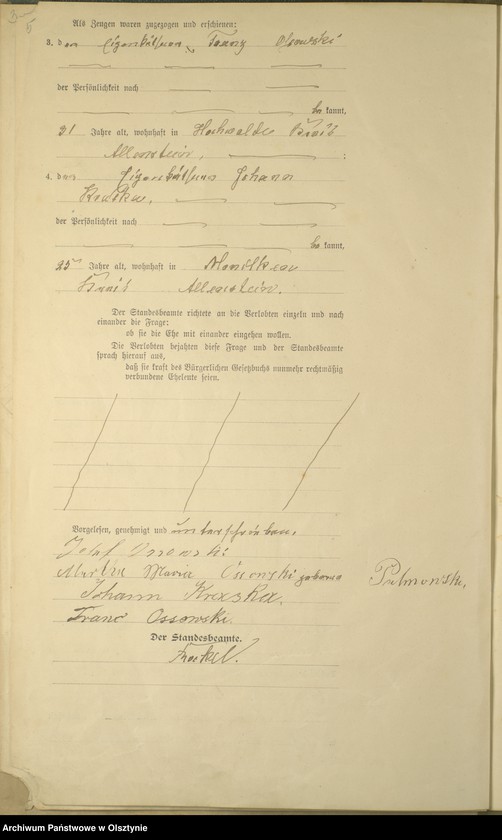 Als Zeugen waren zugezogen und erschienen:
3. der Eigenkäthner Franz Ossowski
der Persönlichkeit nach
be kannt,
31 Jahre alt, wohnhaft in Hochwalde Kreis
Allenstein.
4. der Eigenkäthner Johann
der Persönlichkeit nach
be kannt,
25 Jahre alt, wohnhaft in
Kreis Allenstein.
Der Standesbeamte richtete an die Verlobten einzeln und nach
einander die Frage:
ob sie die Ehe mit einander eingehen wollen.
Die Verlobten bejahten diese Frage und der Standesbeamte
sprach hierauf aus,
daß sie kraft des Bürgerlichen Gesetzbuchs nunmehr rechtmäßig
verbundene Eheleute seien.
Vorgelesen, genehmigt und unterschrieben.
Josef Ossowski
Martha Maria Ossowski geborene
Johann
Franc Ossowski.
Der Standesbeamte.
Archiwum Państwowe w Olsztynie